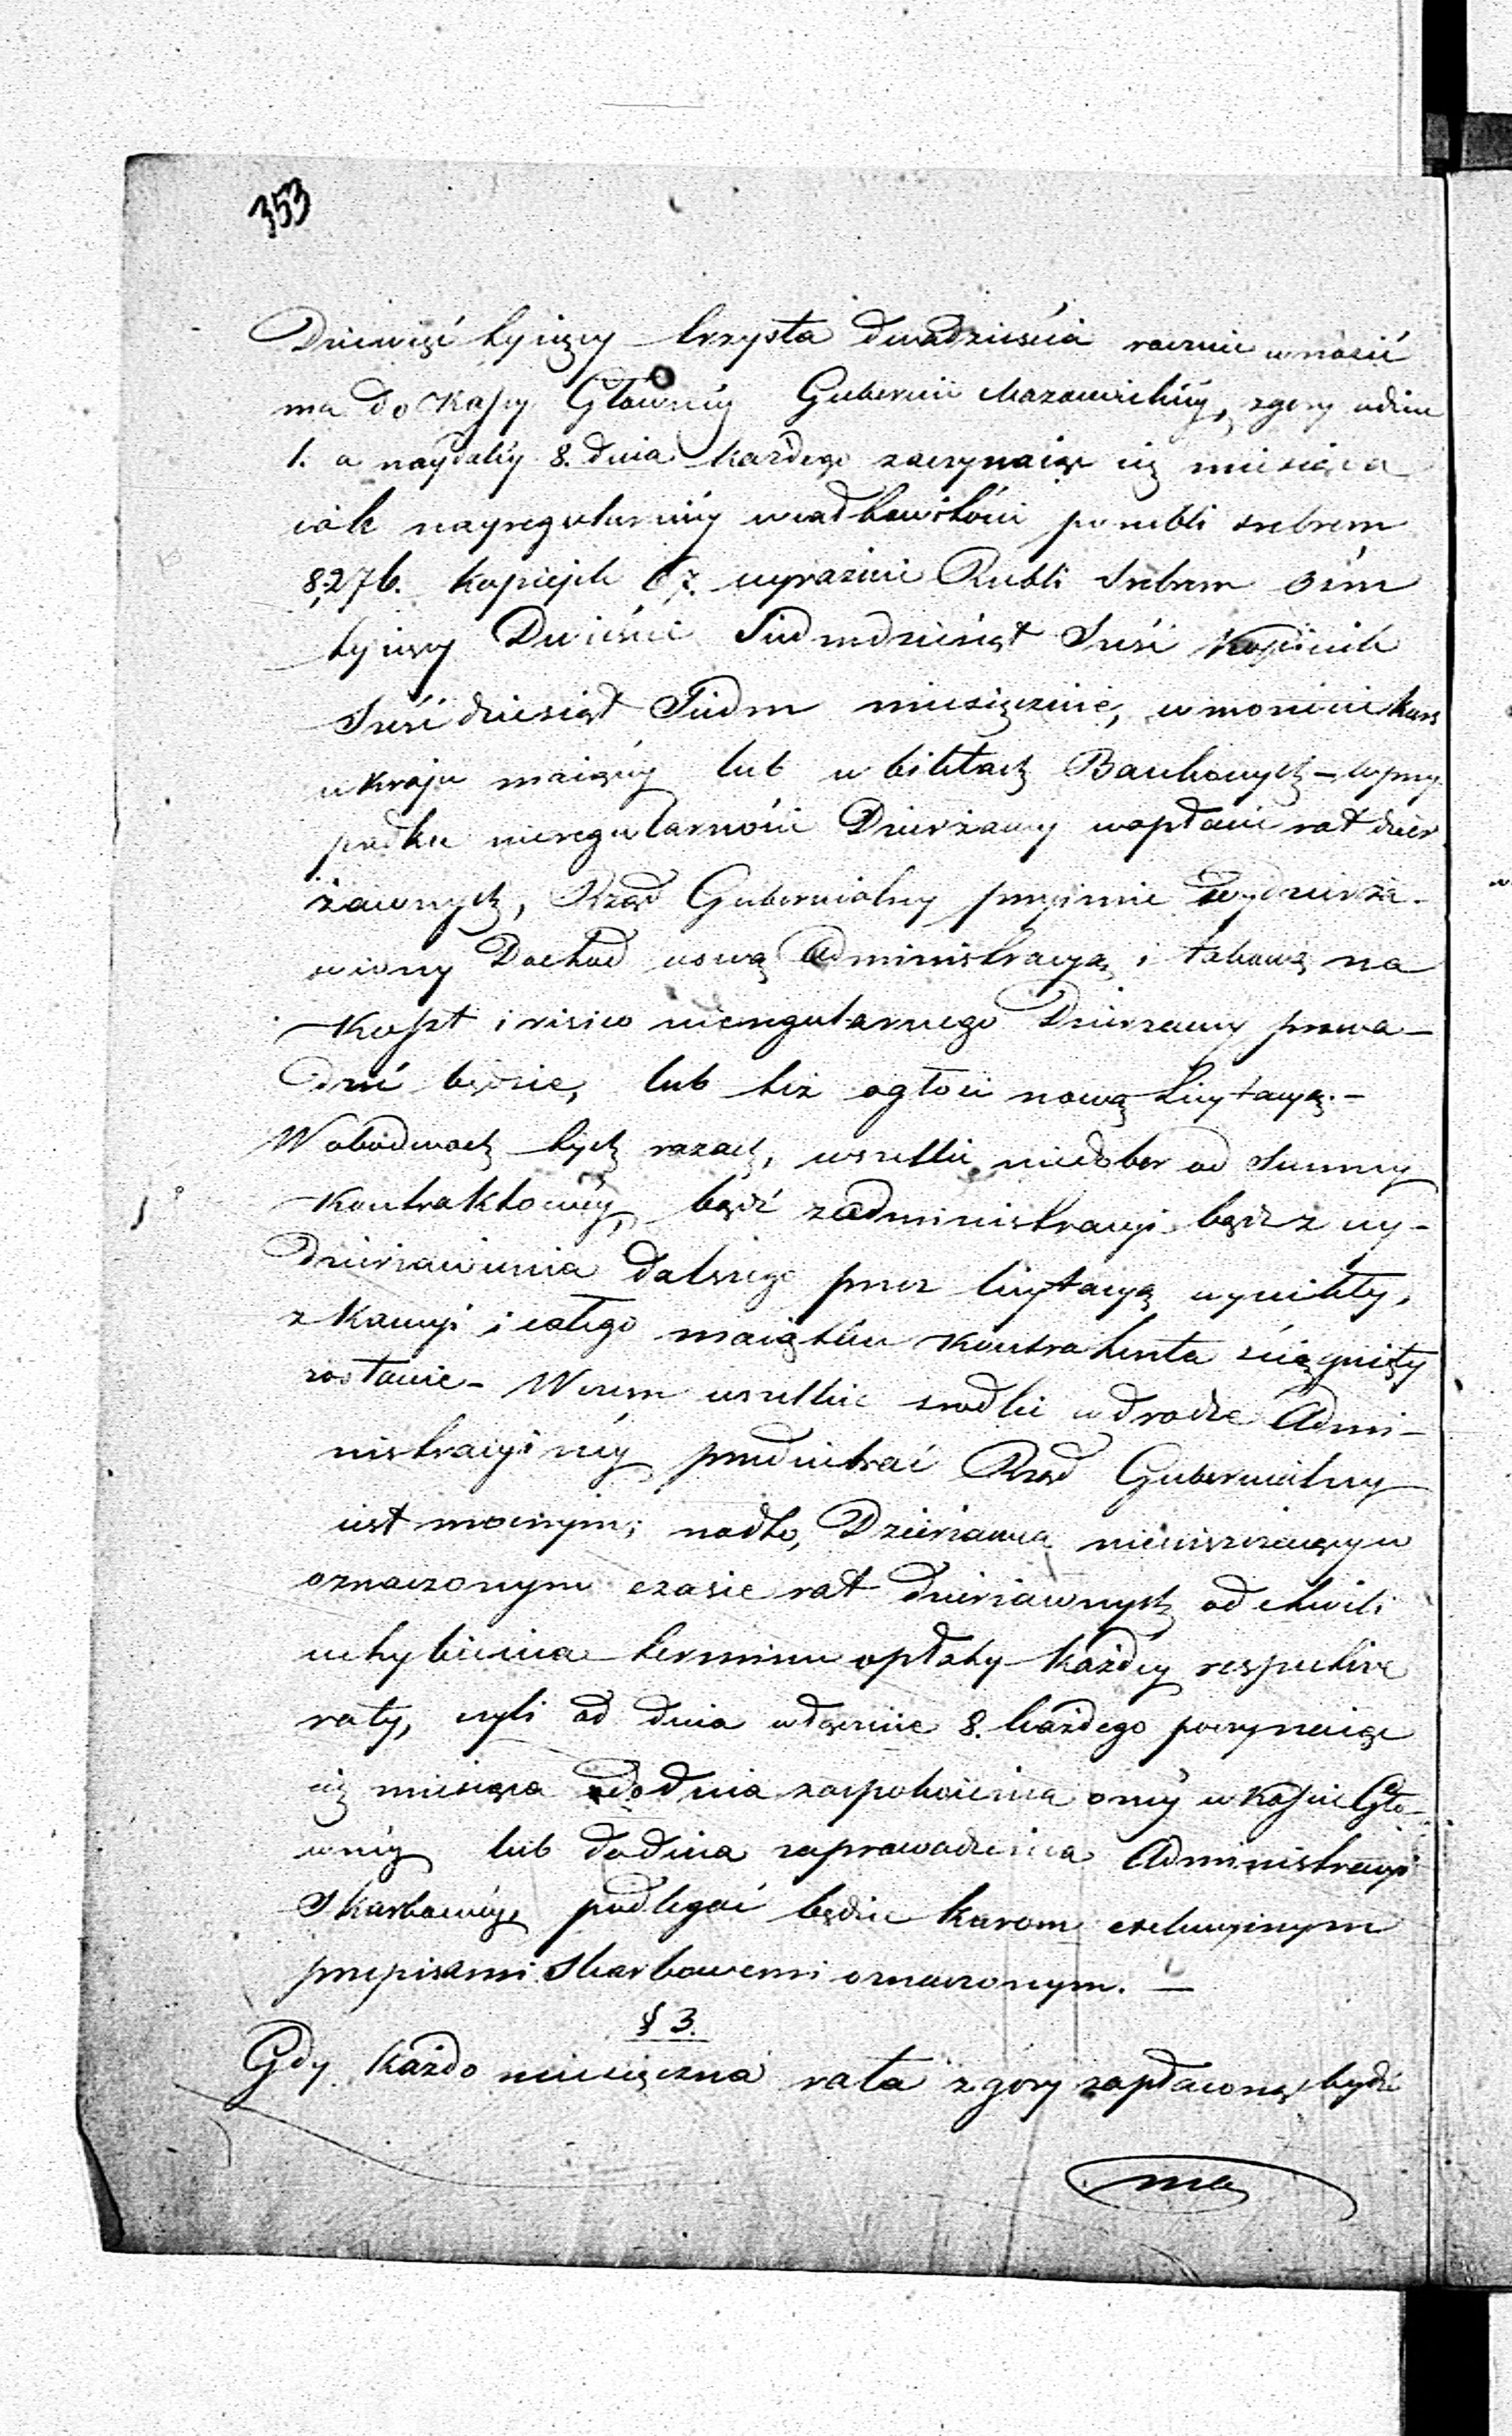 353
Dziewięć tysięcy trzysta dwadzieścia rocznie wnosić
ma do Kassy Główney Gubernii Mazowieckiey, zgory w dniu
1. a naydaley 8. dnia każdego zaczynaiące się miesiąca
iak nayregularniey po rubli srebrem
8,276. kopiejek 67. wyraźnie Rubli Srebrem ośm
tysięcy Dwieście Siedmdziesiąt Sześć Kopiiek
Sześćdziesiąt Siedm miesięcznie, w monecie kurs
w kraju maiącey lub w biletach Bankowych – w przy
padku nieregularności Dzierżawcy w opłacie rat dzier
żawnych, Rząd Gubernialny przyimie wydzierża-
wiony Dochód w swą Administracyą i takową na
Koszt i risico nieregularnego Dzierzawcy prowa-
dzić będzie, lub też ogłosi nową Licytacyą. –
W obudwóch tych razach, wszelki niedobor od Summy
Kontraktowey, bądź z administracyi bądz z wy-
dzierżawienia dalszego przez licytacyą wynikły,
z Kaucyi i całego maiątku Kontrahenta ściągnięty
zostanie – Wczem wszelkie srodki w drodze Admi-
nistracyiney przedsiebrać Rząd Gubernialny
iest mocnym; nadto, Dzierżawca nieuiszczaiący w
oznaczonym czasie rat dzierżawnych od chwili
uchybienia terminu opłaty każdey respective
raty, czyli od dnia włącznie 8. każdego poczynaiące
się miesiąca do dnia zaspokoienia oney w Kassie Głó-
wney lub do dnia zaprowadzenia Administracyi
Skarbowey, podlegać będzie karom exekucyinym
przepisami Skarbowemi oznaczonym. –
§ 3.
Gdy każdo miesięczna rata z gory zapłaconą bydź
ma